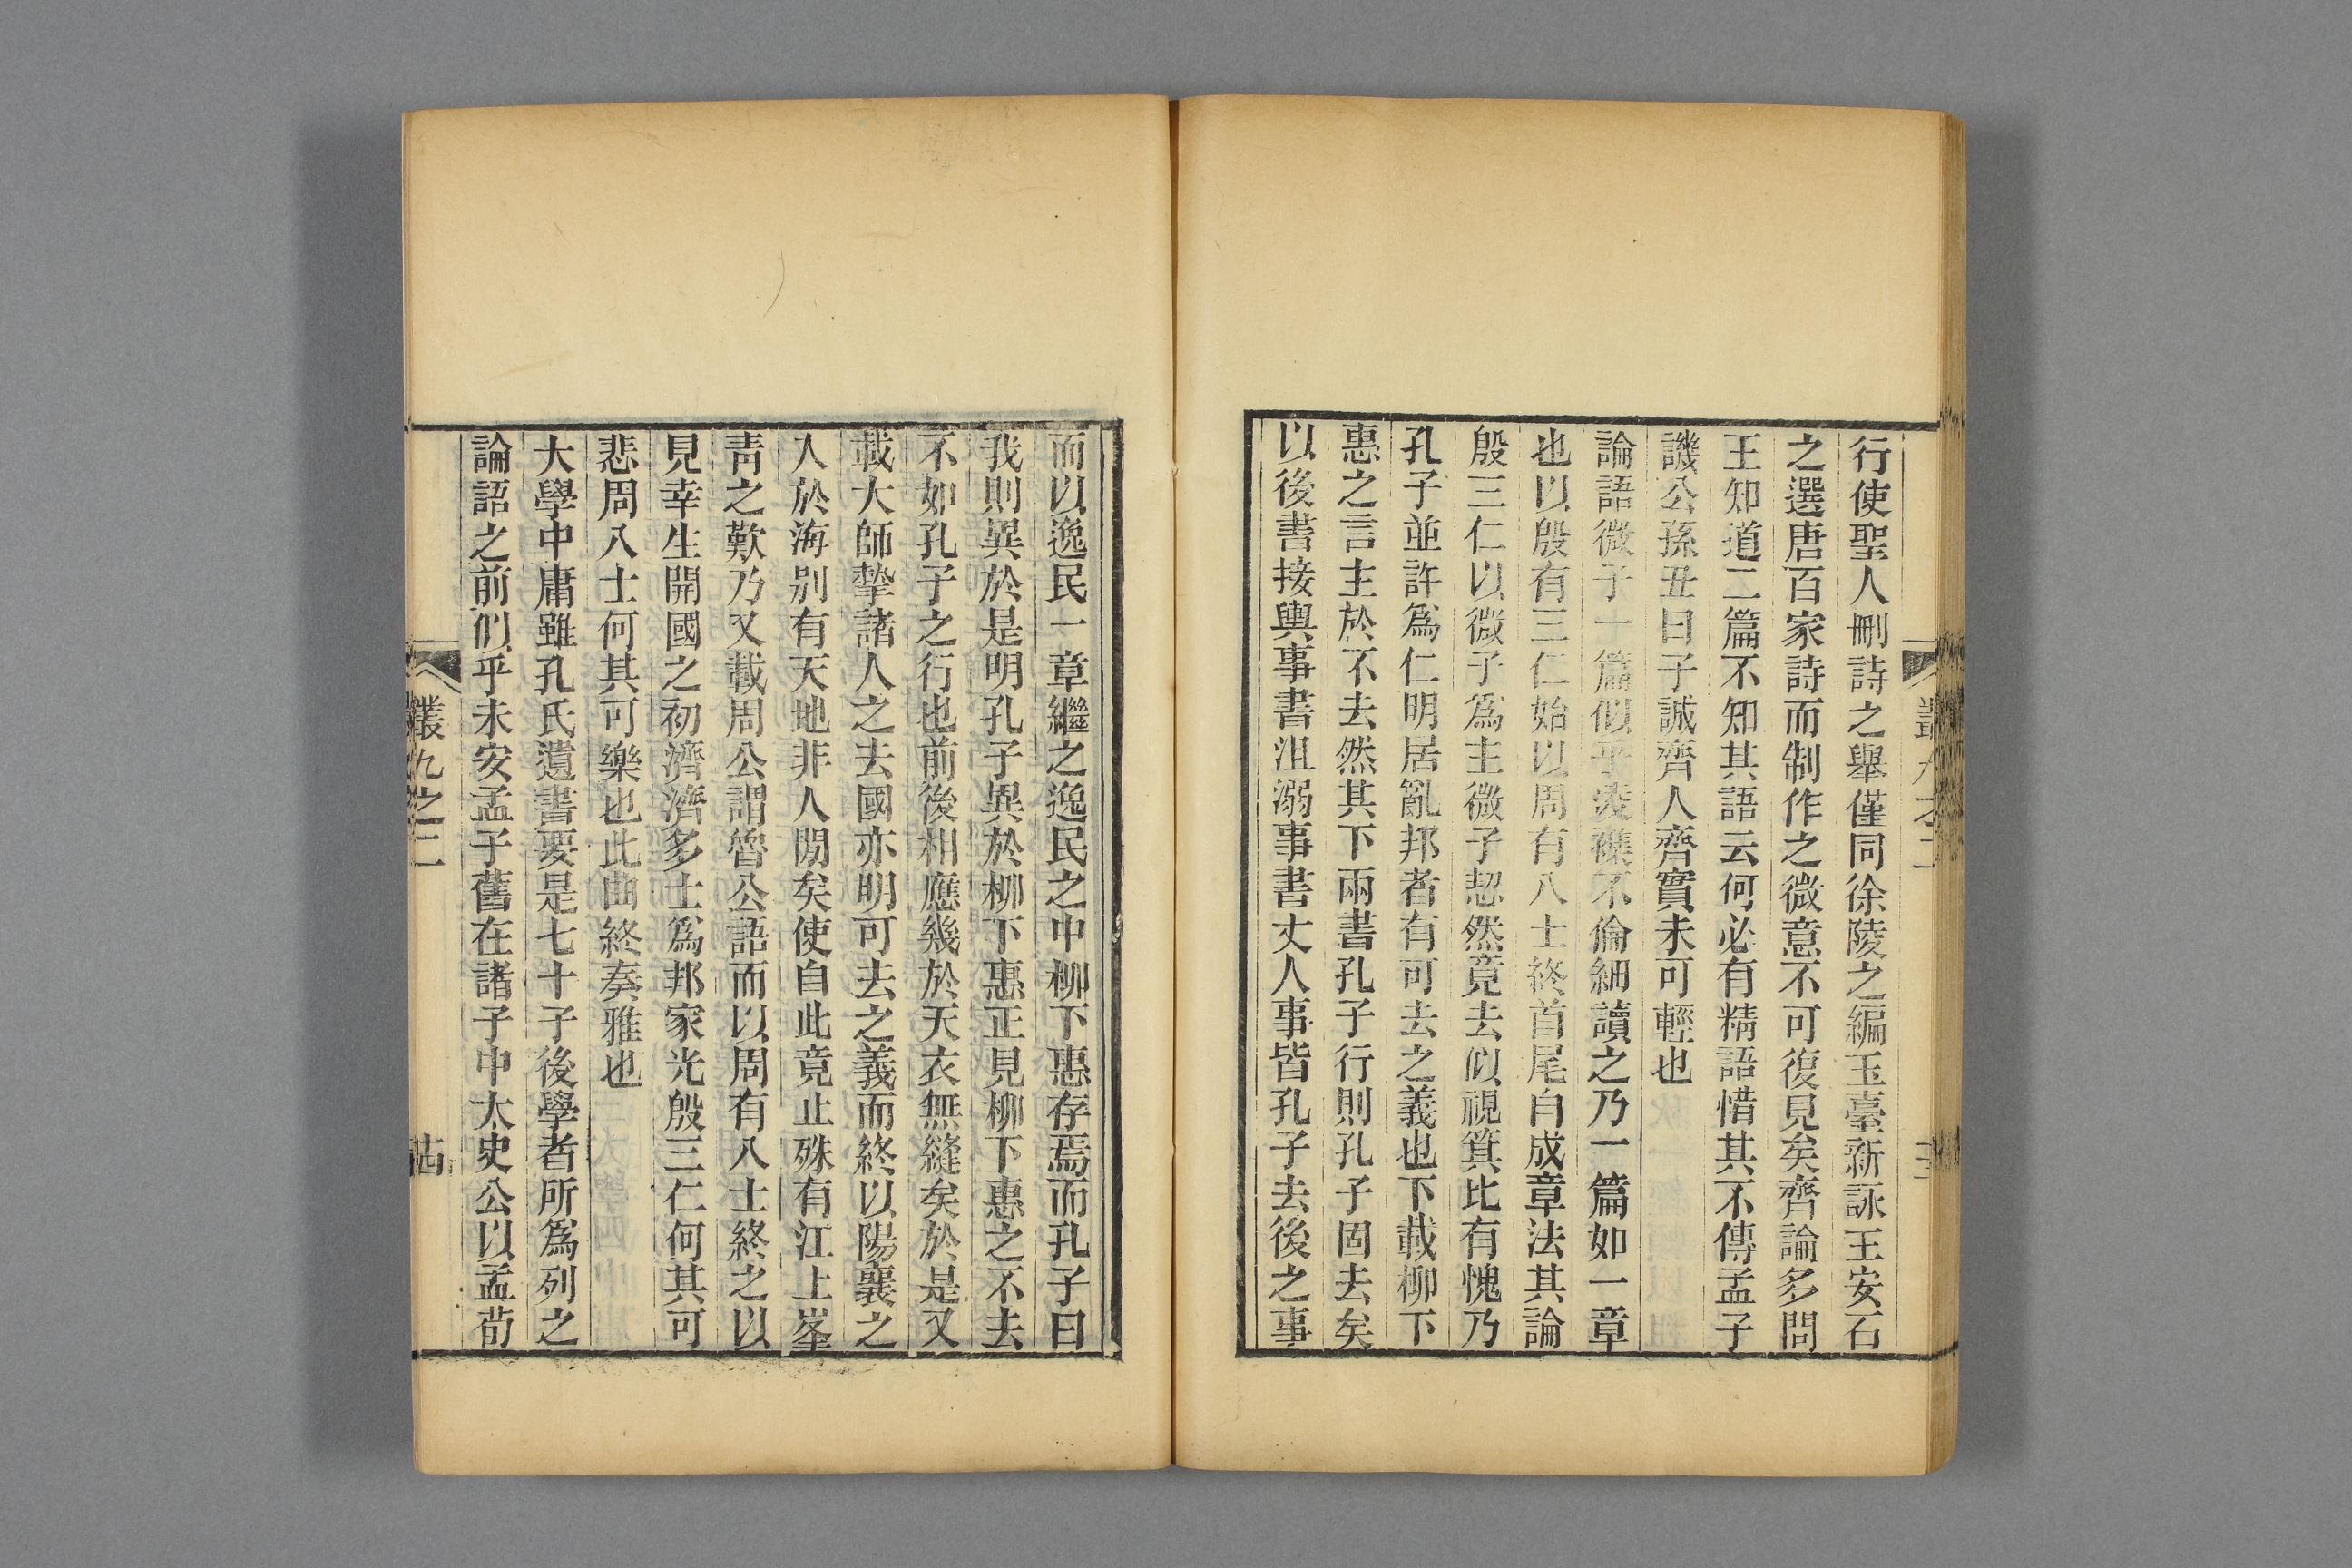 行使聖人刪詩之舉僅同徐陵之編玉臺新詠王安石
之選唐百家詩而制作之微意不可復見矣齊論多問
王知道二篇不知其語云何必有精語惜其不傳孟子
譏公孫丑曰子誠齊人齊實未可輕也
論語微子一篇似乎淩襍不倫細讀之乃一篇如一章
也以殷有三仁始以周有八士終首尾自成章法其論
殷三仁以微子為主微子恝然竟去似視箕比有愧乃
孔子並許為仁明居亂邦者有可去之義也下載柳下
惠之言主於不去然其下兩書孔子行則孔子固去矣
以後書接輿事書沮溺事書丈人事皆孔子去後之事
而以逸民一章繼之逸民之中柳下惠存焉而孔子曰
我則異於是明孔子異於柳下惠正見柳下惠之不去
不如孔子之行也前後相應幾於天衣無縫矣於是又
載大師摯諸人之去國亦明可去之義而終以陽襄之
入於海別有天地非人閒矣使自此竟止殊有江上峯
靑之歎乃又載周公謂魯公語而以周有八士終之以
見幸生開國之初濟濟多士為邦家光殷三仁何其可
悲周八士何其可樂也此曲終奏雅也
大學中庸雖孔氏遺書要是七十子後學者所為列之
論語之前們乎未安孟子舊在諸子中太史公以孟荀
叢九之二